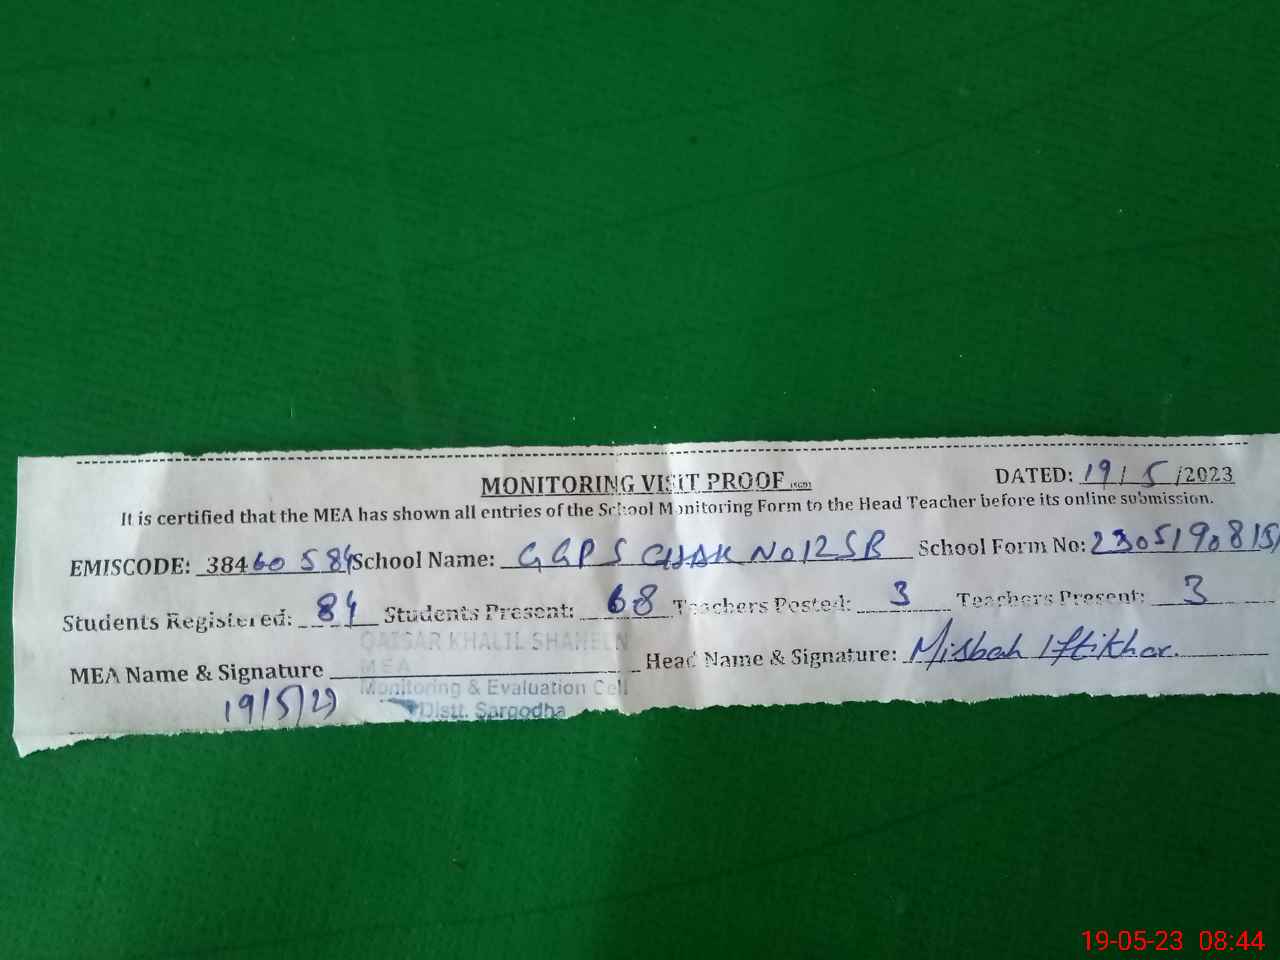 MONITORING VISIT PROOF (SGD)
DATED: 19/5/2023
It is certified that the MEA has shown all entries of the School Monitoring Form to the Head Teacher before its online submission.
EMISCODE: 38460584 School Name: GGPS CHAK No 12 SB School Form No: 2305190815
Students Registered: 84 Students Present: 68 Teachers Posted: 3 Teachers Present: 3
QAISAR KHALIL SHAHEEN
MEA Name & Signature Head Name & Signature: Misbah Iftikhar.
MEA
Monitoring & Evaluation Cell
19/5/23
Distt. Sargodha
19-05-23 08:44